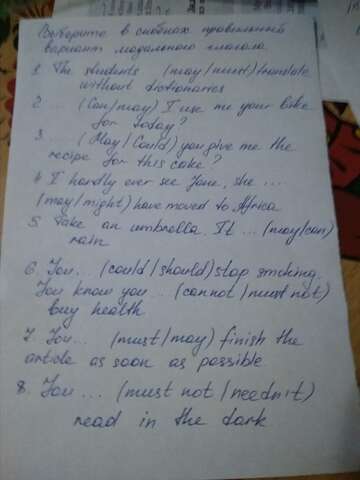 Выберите в скобках правильный
вариант модального глагола
1. The students (may/must) translate
without dictionaries
2. ... (Can/may) I use me your bike
for today?
3. ... (May/Could) you give me the
recipe for this cake?
4. I hardly ever see Jane, she ...
(may/might) have moved to Africa
5. Take an umbrella. It ... (may/can)
rain
6. You ... (could/should) stop smoking.
You know you ... (cannot/must not)
buy health
7. You ... (must/may) finish the
article as soon as possible
8. You ... (must not/needn't)
read in the dark